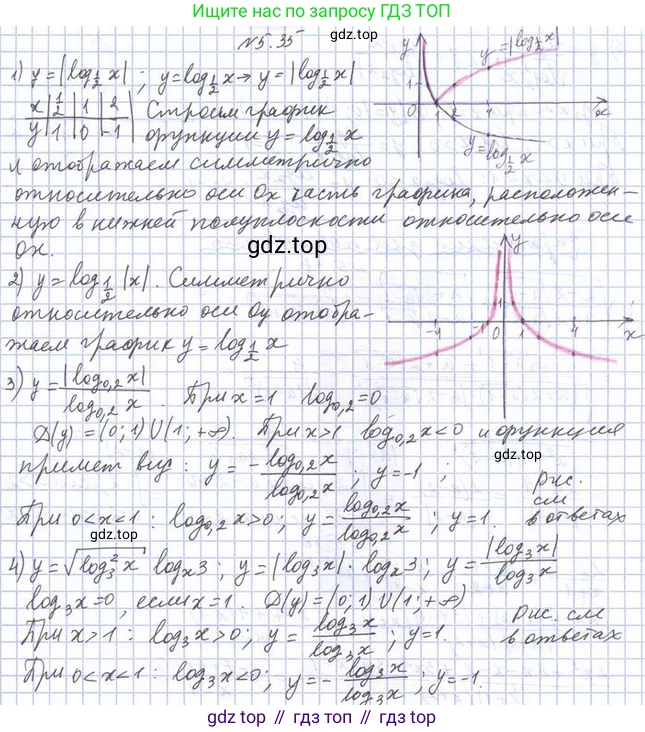 Ищите нас по запросу ГДЗ ТОП
gdz.top
№5.35
1) y=|log_{1/2} x| ; y=log_{1/2} x → y=|log_{1/2} x|
x | 1/2 | 1 | 2 | Строим график
y | 1 | 0 | -1 | функции y=log_{1/2} x
y
y=|log_{1/2} x|
1
0 1 4 x
y=log_{1/2} x
и отображаем симметрично
относительно оси Ox часть графика, расположен-
ную в нижней полуплоскости относительно оси
Ox.
gdz.top
2) y=log_{1/2} |x|. Симметрично
относительно оси Oy отобра-
жаем график y=log_{1/2} x
y
1
-4 0 1 4 x
3) y=|log_{0,2} x|/log_{0,2} x . При x=1 log_{0,2}=0
D(y)=(0;1)∪(1;+∞). При x>1 log_{0,2} x<0 и функция
примет вид: y=-log_{0,2} x/log_{0,2} x ; y=-1 ;
При 0<x<1: log_{0,2} x>0; y=log_{0,2} x/log_{0,2} x ; y=1.
рис.
см
в ответах
gdz.top
4) y=√(log_3^2 x) log_x 3; y=|log_3 x|·log_x 3; y=|log_3 x|/log_3 x
log_3 x=0, если x=1. D(y)=(0;1)∪(1;+∞)
При x>1: log_3 x>0; y=log_3 x/log_3 x ; y=1.
рис. см
в ответах
При 0<x<1: log_3 x<0; y=-log_3 x/log_3 x ; y=-1.
gdz.top // гдз.топ // гдз.top